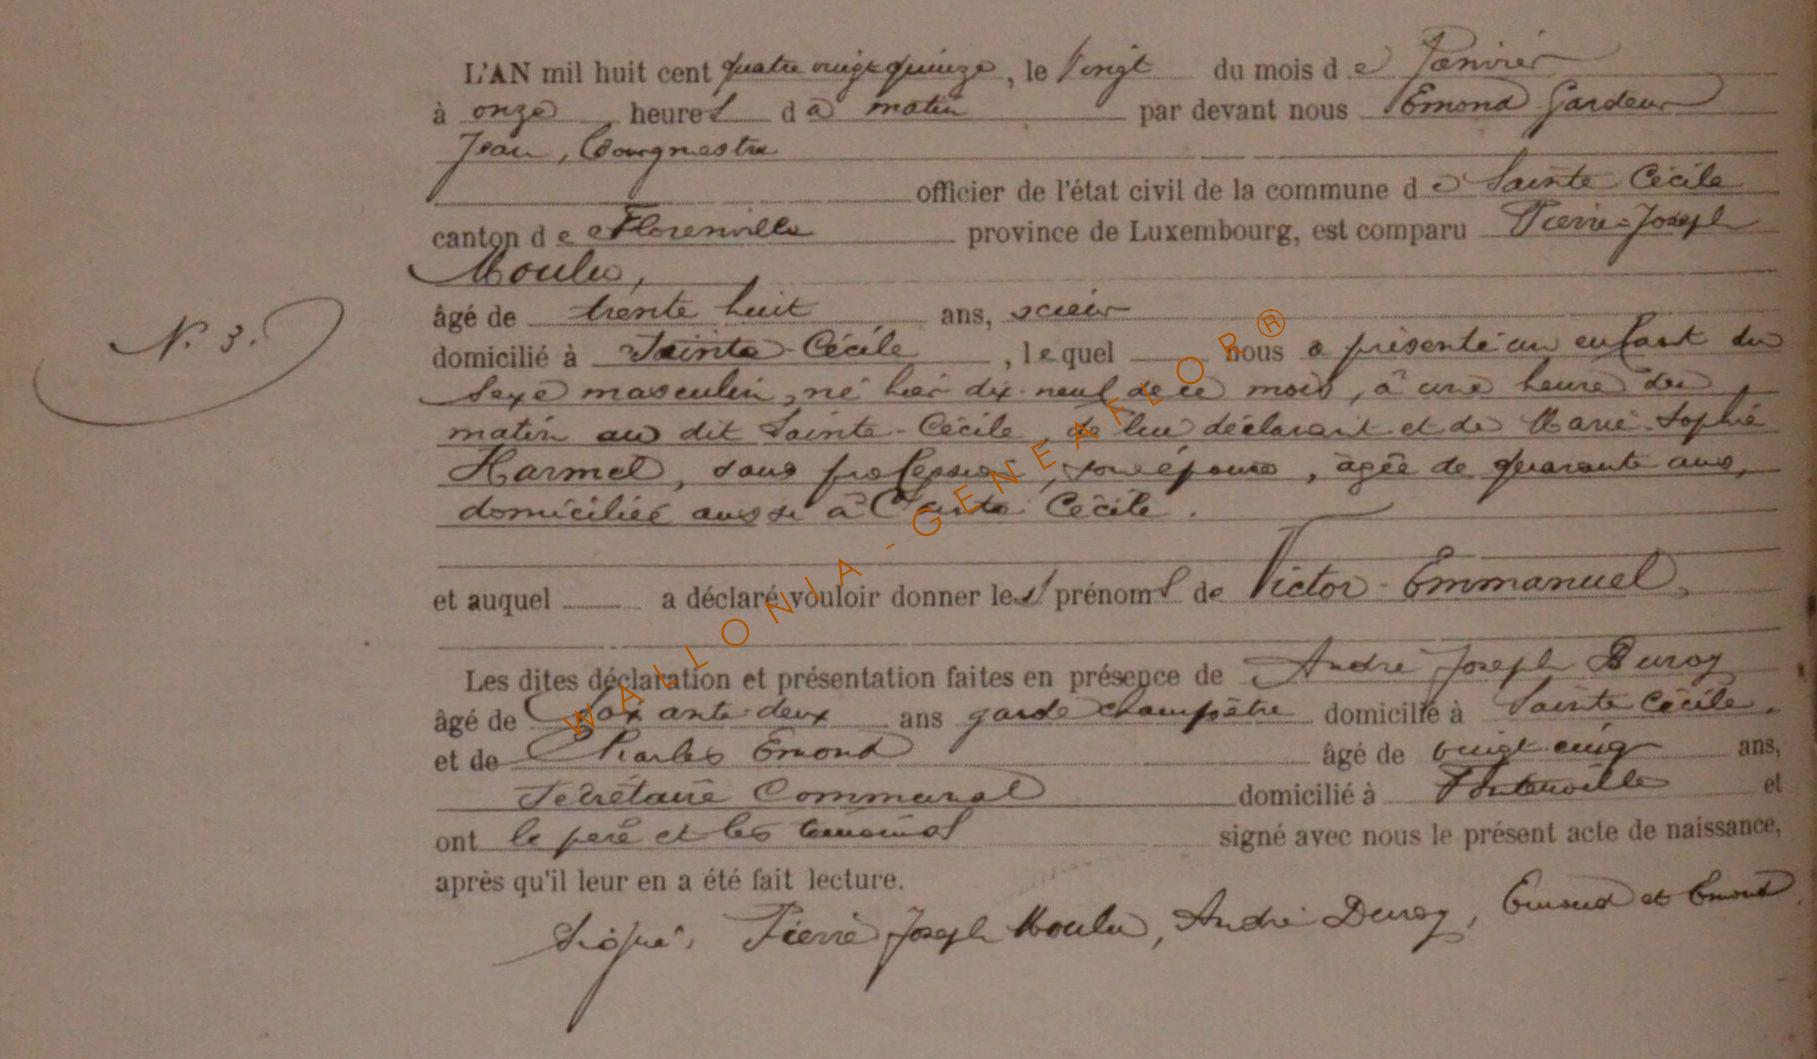 L'AN mil huit cent quatre vingt quinze, le vingt du mois de Janvier
à onze heures da matin par devant nous Emond Gardeur
Jean, Bourgmestre
officier de l'état civil de la commune de Sainte Cécile
canton de Florenville province de Luxembourg, est comparu Pierre-Joseph
Moulu,
N. 3.
âgé de trente huit ans, scieur
domicilié à Sainte-Cécile, lequel nous a présenté un enfant du
sexe masculin, né hier dix-neuf de ce mois, à une heure du
matin au dit Sainte-Cécile de lui déclarant et de Marie-Sophie
Harmel, sans profession, son épouse, âgée de quarante ans,
domiciliée aussi à Sainte Cécile.
et auquel a déclaré vouloir donner les prénoms de Victor-Emmanuel,
Les dites déclaration et présentation faites en présence de André Joseph Duroy
âgé de soixante-deux ans garde champêtre domicilié à Sainte Cécile.
et de Charles Emond âgé de vingt-cinq ans,
Secrétaire Communal domicilié à et
ont le père et les témoins signé avec nous le présent acte de naissance,
après qu'il leur en a été fait lecture.
Signé: Pierre Joseph Moulu, André Duroy, Emond et Emond.
WALLONIA-GENEAFLOR®